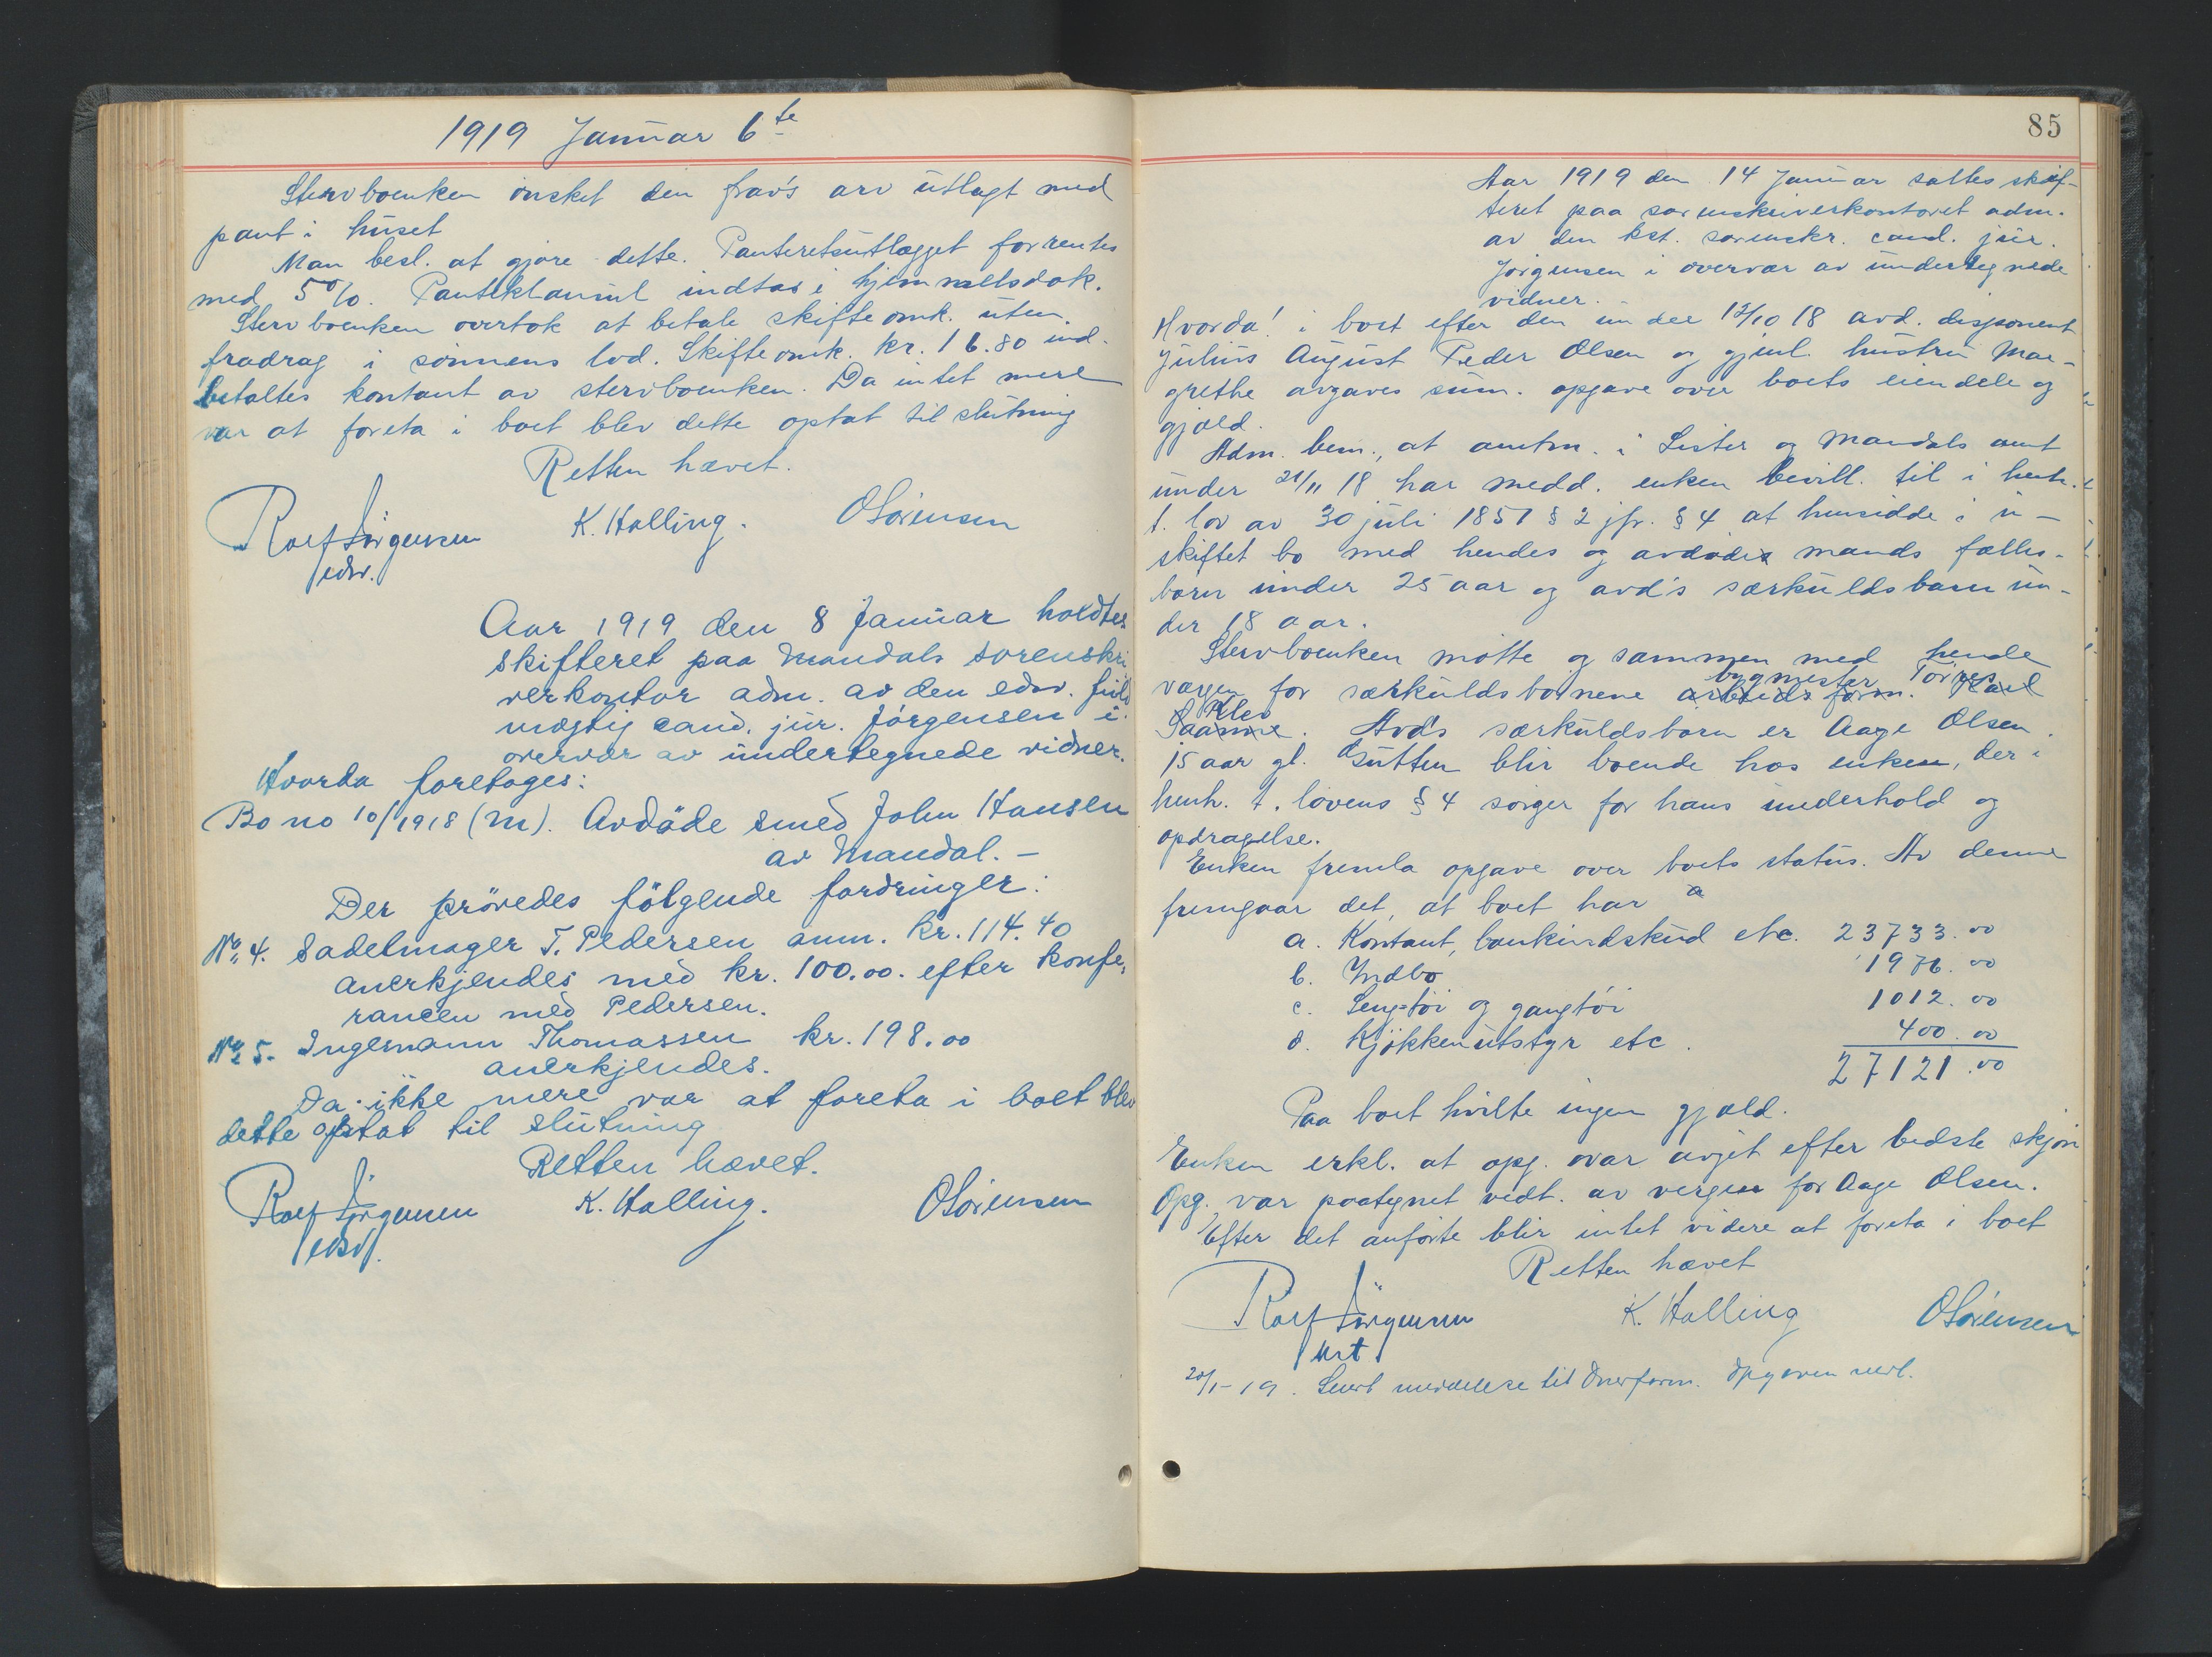 1919 Januar 6te
Stervboenken önsket den frav's arv utlagt med
pant i huset
Man besl. at gjöre dette. Panteretsutlægget forrentes
med 5%. Panteklausul indtas i hjemmelsdok.
Stervboenken overtok at betale skifteomk. uten
fradrag i sönnens lod. Skifteomk. kr. 16.80 ind-
betaltes kontant av stervboenken. Da intet mere
var at foreta i boet blev dette optat til slutning
Retten hævet.
Rolf Jörgensen K. Halling. O Sörensen
edsv.
Aar 1919 den 8 Januar holdtes
skifteret paa Mandals sorenskri
verkontor adm. av den edsv. fuld
mægtig cand. jur. Jörgensen i
overvær av undertegnede vidner.
Hvorda foretoges:
Bo no 10/1918 (M). Avdöde smed John Hansen
av Mandal. –
Der prövedes fölgende fordringer:
No. 4. Sadelmager T. Pedersen anm. kr. 114.40
anerkjendes med kr. 100.00. efter konfe-
rancen med Pedersen.
No. 5. Ingemann Thomassen kr. 198.00
anerkjendes.
Da ikke mere var at foreta i boet blev
dette optat til slutning
Retten hævet.
Rolf Jörgensen K. Halling. O Sörensen
edsv.
85
Aar 1919 den 14 januar sattes skif-
teret paa sorenskriverkontoret adm.
av den kst. sorenskr. cand. jur.
Jörgensen i overvær av undertegnede
vidner.
Hvorda! i boet efter den under 12/10 18 avd. disponent
Julius August Peder Olsen og gjenl. hustru Mar-
grethe avgaves sum. opgave over boets eiendele og
gjæld.
Adm. bem., at amtm. i Lister og Mandals amt
under 21/11 18 har medd. enken bevill. til i henh.
t. lov av 30 juli 1851 § 2 jfr. § 4 at hensidde i u-
skiftet bo med hendes og avdödes mands fælles-
barn under 25 aar og avd's særkuldsbarn un-
der 18 aar.
Stervboenken mötte og sammen med hende
bygmester Törres
værgen for særkuldsbörnene arbeidsform. Karl
Klev
Saanne. Avd's særkuldsbarn er Aage Olsen
15 aar gl. Gutten blir boende hos enken, der i
henh. t. lovens § 4 sörger for hans underhold og
opdragelse.
Enken fremla opgave over boets status. Av denne
fremgaar det, at boet har
a. Kontant, bankindskud etc. 23733.00
b. Indbo 1976.00
c. Sengtöi og gangtöi 1012.00
d. Kjökkenutstyr etc. 400.00
27121.00
Paa boet hvilte ingen gjæld.
Enken erkl. at opg. var avgit efter bedste skjön
Opg. var paategnet vedt. av vergen for Aage Olsen.
Efter det anförte blir intet videre at foreta i boet
Retten hævet
Rolf Jörgensen K. Halling O Sörensen
kst
20/1-19. Sendt meddelelse til Overform. Opgaven vedl.